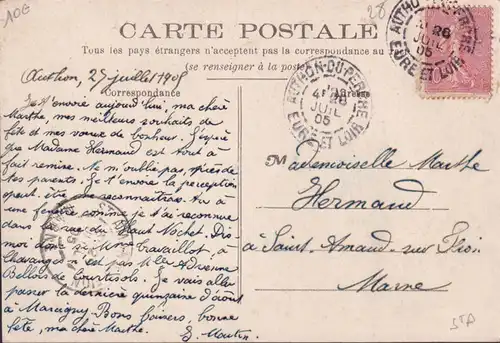 10E
28
CARTE POSTALE
Tous les pays étrangers n'acceptent pas la correspondance au
(se renseigner à la poste
Correspondance
Adresse
AUTHON-DU-PERCHE
26
JUIL
05
EURE ET LOIR
AUTHON-DU-PERCHE
26
JUIL
05
EURE ET LOIR
Authon, 27 juillet 1905
Je t'envoie aujourd'hui, ma chère
Marthe mes meilleurs souhaits de
fête et mes vœux de bonheur. J'espère
que Madame Hermand est tout à
fait remise. Ne m'oublie pas auprès de
tes parents. Je t'envoie la perception
peut-être me reconnaîtras-tu à
une fenêtre comme je t'ai reconnue
dans la rue du Haut Nochet. Dis
moi donc si Mme Travaillot, à
Chavanges n'est pas Mlle Adrienne
Bellois de Courtisols. Je vais aller
passer la dernière quinzaine d'août
à Marcigny. Bons baisers, bonne
fête, ma chère Marthe.
E. Moutin
Mademoiselle Marthe
Hermand
à Saint-Amand-sur-Fion
Marne
STA